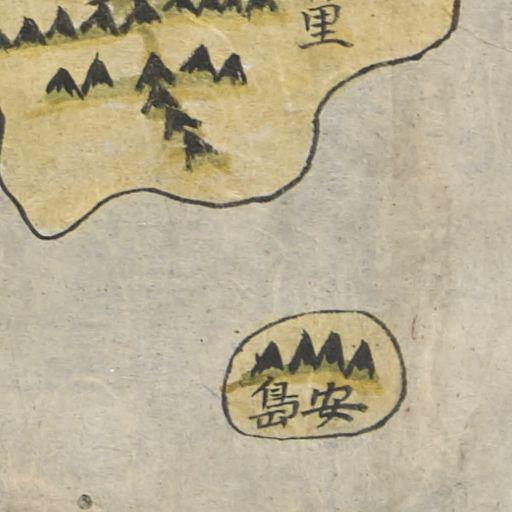 里
安島